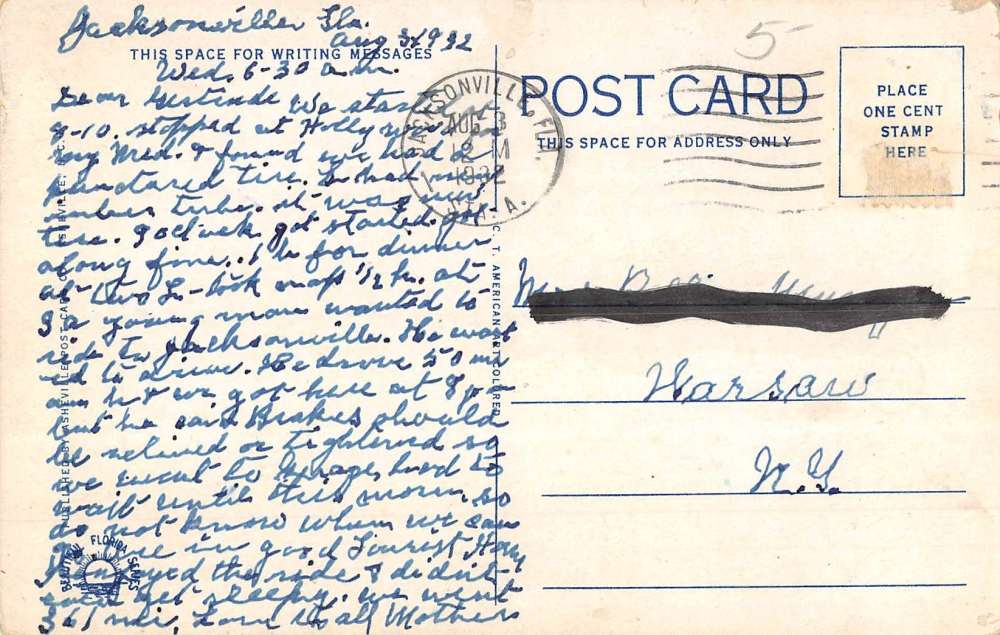 Jacksonville Fla.
Aug 3 1932
THIS SPACE FOR WRITING MESSAGES
Wed. 6-30 a.m.
Dear We star
8-10. stopped at Holly
Wed. & found we had a
punctured tire. had
tube. it was
tire. 9 oclock got started. got
along fine. 1 h for dinner
at two L- took nap 1/2 h. at
a young man wanted to
ride to Jacksonville. He want
ed to drive. He drove 50 mi
an h & we got here at 8 p
but he said Brakes should
be relined or tightened so
we went to Garage, had to
wait until this morn. so
do not know when we can
in good Tourist Home
I enjoyed the ride & didnt
even get sleepy. we went
361 mi. Love to all Mother
BEAUTIFUL FLORIDA SERIES
PUBLISHED BY ASHEVILLE POST CARD CO., ASHEVILLE, N. C.
C. T. AMERICAN ART COLORED
JACKSONVILLE, FLA.
AUG 3
12 M
1932
STA. A.
5-
POST CARD
THIS SPACE FOR ADDRESS ONLY
PLACE
ONE CENT
STAMP
HERE
Warsaw
N.Y.